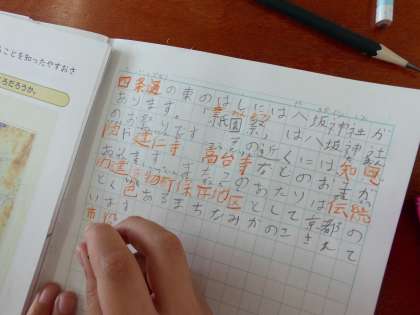 ることを知ったやすおさ
ろだろうか。
四条通の東のはしには八坂神社が
あります。「祇園祭」は八坂神社
のお祭りです。この近くには、知恩
院、建仁寺、高台寺などのお寺が
あります。またこのあたりは、伝統
的建造物群保存地区として京都の
とく色あるまちなみがのこされて
います
市